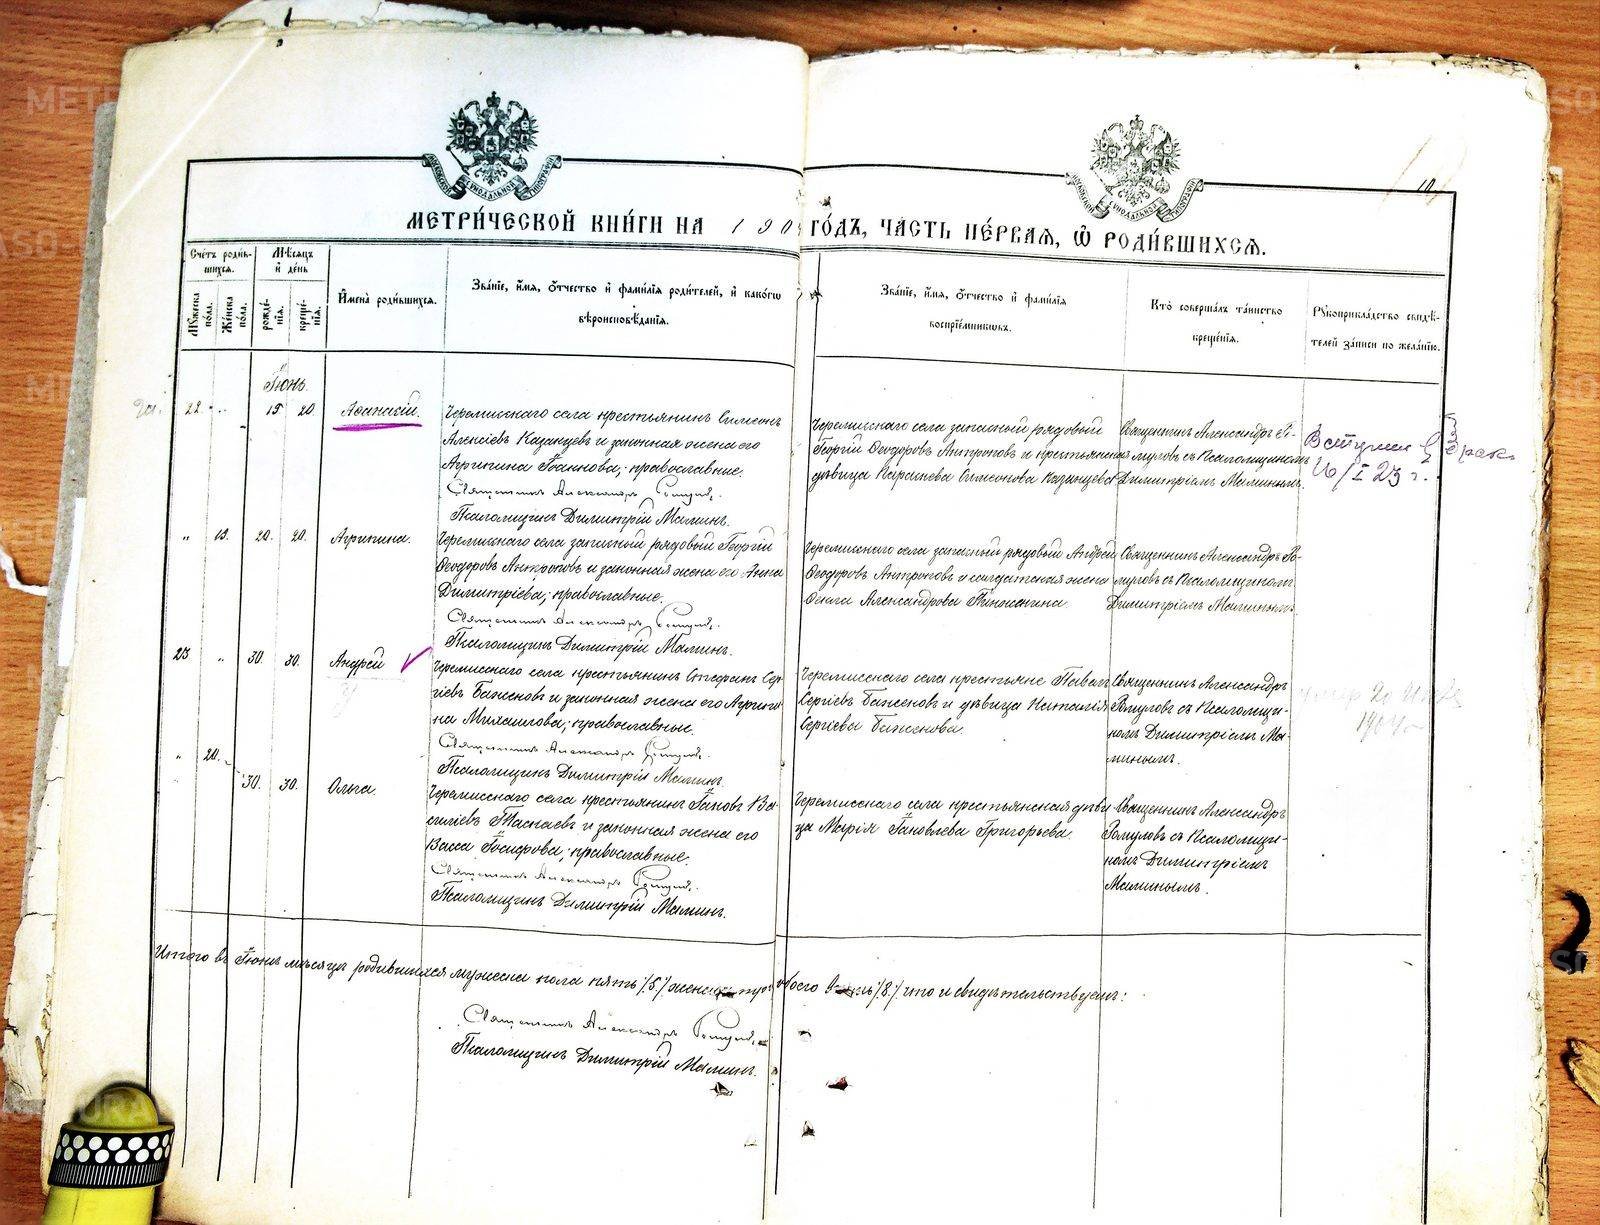 МЕТРИ́ЧЕСКОЙ КНИ́ГИ НА 190 ГО́ДЪ, ЧА́СТЬ ПЕ́РВАЯ, Ѿ РОДИ́ВШИХСЯ.
Счетъ роди́в-
шихся.
Мѣсяцъ
и де́нь
Мужеска пола.
Женска пола.
рожде́-
нія.
креще́-
нія.
Имена̀ роди́вшихся.
Зва́ніе, и́мя, о́тчество и фами́лія роди́телей, и како́гѡ
вѣроисповѣ́данія.
Зва́ніе, и́мя, о́тчество и фами́лія
воспріе́мниковъ.
Кто̀ соверша́лъ та́инство
креще́нія.
Рукоприкла́дство свидѣ́-
телей за́писи по жела́нію.
Іюнь.
22. " 15 20. Аѳанасій.
Черемисскаго села крестьянинъ Симеонъ
Алексіевъ Казанцевъ и законная жена его
Агрипина Іоаннова; православные.
Священникъ Александръ Ромуловъ.
Псаломщикъ Димитрій Маминъ.
Черемисскаго села запасный рядовый
Георгій Ѳеодоровъ Антроповъ и крестьянская
дѣвица Параскева Симеонова Казанцева
Священникъ Александръ Ро-
муловъ съ Псаломщикомъ
Димитріемъ Маминымъ.
Вступил в брак
16/I 23 г.
" 19. 20. 20. Агрипина.
Черемисскаго села запасный рядовый Георгій
Ѳеодоровъ Антроповъ и законная жена его Анна
Димитріева; православные.
Священникъ Александръ Ромуловъ.
Псаломщикъ Димитрій Маминъ.
Черемисскаго села запасный рядовый Андрей
Ѳеодоровъ Антроповъ и солдатская жена
Ѳекла Александрова
Священникъ Александръ Ро-
муловъ съ Псаломщикомъ
Димитріемъ Маминымъ.
23 " 30. 30. Андрей
Черемисскаго села крестьянинъ Стефанъ Сер-
гіевъ Баженовъ и законная жена его Агрипи-
на Михаилова; православные.
Священникъ Александръ Ромуловъ.
Псаломщикъ Димитрій Маминъ.
Черемисскаго села крестьяне Павелъ
Сергіевъ Баженовъ и дѣвица Наталія
Сергіева Баженова.
Священникъ Александръ
Ромуловъ съ Псаломщи-
комъ Димитріемъ Ма-
минымъ.
умер 20
1904
" 20. 30. 30. Ольга.
Черемисскаго села крестьянинъ Іаковъ Ва-
силіевъ и законная жена его
Васса Іосифова; православные.
Священникъ Александръ Ромуловъ.
Псаломщикъ Димитрій Маминъ.
Черемисскаго села крестьянская дѣви-
ца Марія Іаковлева Григорьева.
Священникъ Александръ
Ромуловъ съ Псаломщи-
комъ Димитріемъ
Маминымъ.
Итого въ Іюнѣ мѣсяцѣ родившихся мужеска пола пять /5/ женска обоего /8/ что и свидѣтельствуемъ:
Священникъ Александръ Ромуловъ.
Псаломщикъ Димитрій Маминъ.